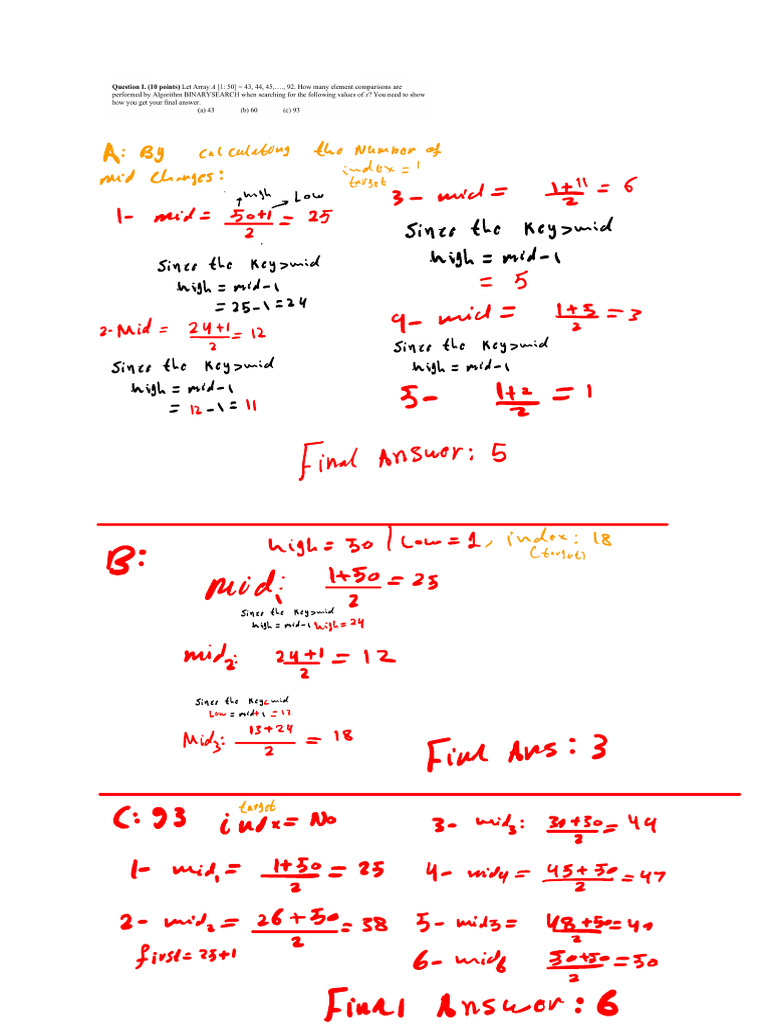 Question I. (10 points) Let Array A [1: 50] = 43, 44, 45,…., 92. How many element comparisons are
performed by Algorithm BINARYSEARCH when searching for the following values of x? You need to show
how you get your final answer.
(a) 43 (b) 60 (c) 93
A: By calculating the Number of
mid changes:
index = 1
target
high Low
1- mid = 50+1/2 = 25
Since the Key>mid
high = mid-1
= 25-1 = 24
2- Mid = 24+1/2 = 12
Since the Key>mid
high = mid-1
= 12-1 = 11
3- mid = 1+11/2 = 6
Since the Key>mid
high = mid-1
= 5
4- mid = 1+5/2 = 3
Since the Key>mid
high = mid-1
5- 1+2/2 = 1
Final Answer: 5
B: high = 50 / Low = 1, index: 18
(target)
mid1: 1+50/2 = 25
Since the Key>mid
high = mid-1 high = 24
mid2: 24+1/2 = 12
Since the Key< mid
Low = mid+1 = 12
Mid3: 13+24/2 = 18
Final Ans: 3
C: 93 target
indx = No
1- mid1 = 1+50/2 = 25
2- mid2 = 26+50/2 = 38
first = 25+1
3- mid3: 39+50/2 = 44
4- mid4 = 45+50/2 = 47
5- mid5 = 48+50/2 = 49
6- mid6 50+50/2 = 50
Final Answer: 6